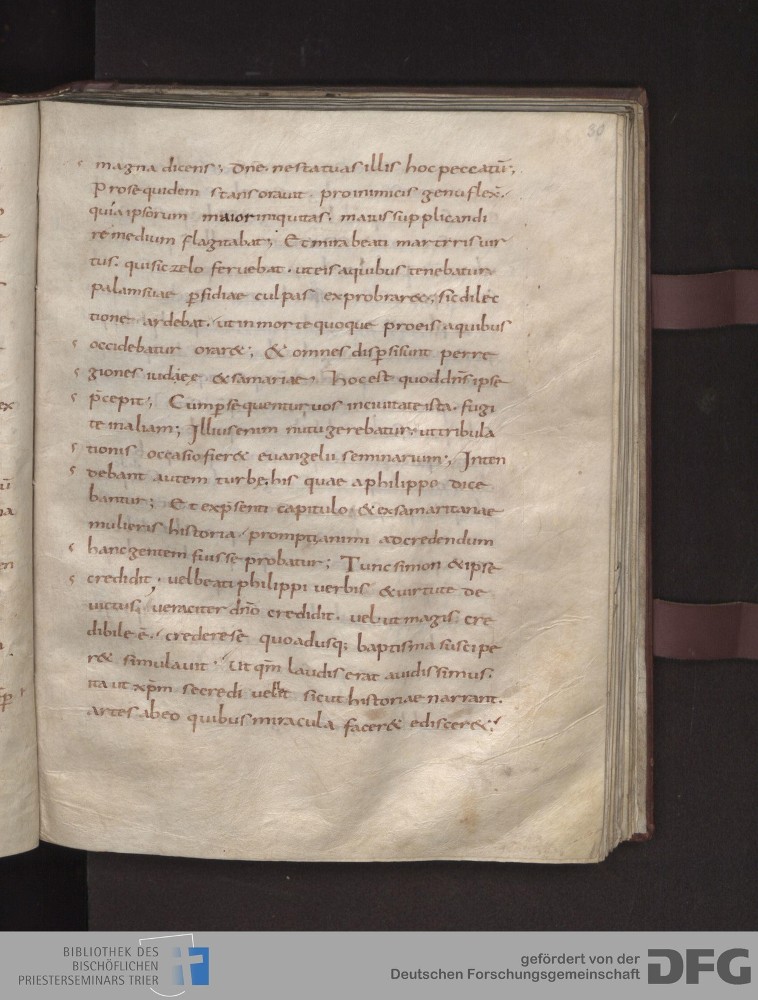 30
magna dicens; dn̄e. nestatuas illis hoc peccatū;
Prose quidem stans orauit. pro inimicis genu flex̄.
quia ipsorum maior iniquitas. maius supplicandi
remedium flagitabat; Et mira beati martyris uir
tus. qui sic zelo feruebat. ut eis a quibus tenebatur
palam suae p̄fidiae culpas exprobrar&. sic dilec
tione ardebat. ut in morte quoque pro eis a quibus
occidebatur orar&; & omnes dispersi sunt per re
giones iudaeae & samariae; hoc est quod dn̄s ipse
p̄cepit; Cum p̄sequentur uos in ciuitate ista. fugi
te in aliam; Illius enim nutu gerebatur. ut tribula
tionis occasio fier& euangelii seminarium; Inten
debant autem turbe his quae a philippo dice
bantur; Et ex p̄senti capitulo & ex samaritanae
mulieris historia promptianimi ad credendum
hanc gentem fuisse probatur; Tunc simon & ipse
credidit. uel beati philippi uerbis & uirtute de
uictus, ueraciter dn̄o credidit. uel ut magis cre
dibile ē. credere se quo adusq; baptisma suscipe
r& simulauit. Ut qm̄ laudis erat auidissimus.
ita ut xp̄m se credi uellet sicut historiae narrant.
artes ab eo quibus miracula facer& ediscer&;
BIBLIOTHEK DES
BISCHÖFLICHEN
PRIESTERSEMINARS TRIER
gefördert von der
Deutschen Forschungsgemeinschaft
DFG